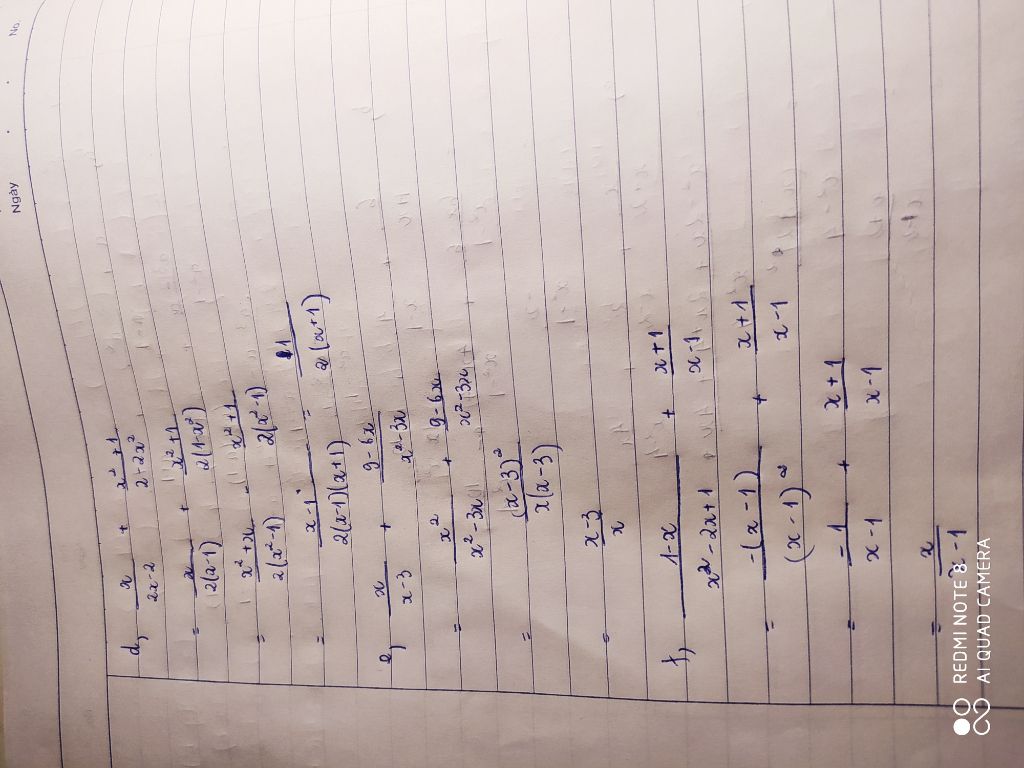 No.
Ngày
d, x/(2x-2) + (x²+1)/(2-2x²)
= x/(2(x-1)) + (x²+1)/(2(1-x²))
= (x²+x)/(2(x²-1)) - (x²+1)/(2(x²-1))
= (x-1)/(2(x-1)(x+1)) = 1/(2(x+1))
e, x/(x-3) + (9-6x)/(x²-3x)
= x²/(x²-3x) + (9-6x)/(x²-3x)
= (x-3)²/(x(x-3))
= (x-3)/x
f, (1-x)/(x²-2x+1) + (x+1)/(x-1)
= -(x-1)/(x-1)² + (x+1)/(x-1)
= -1/(x-1) + (x+1)/(x-1)
= x/(x-1)
REDMI NOTE 8
AI QUAD CAMERA